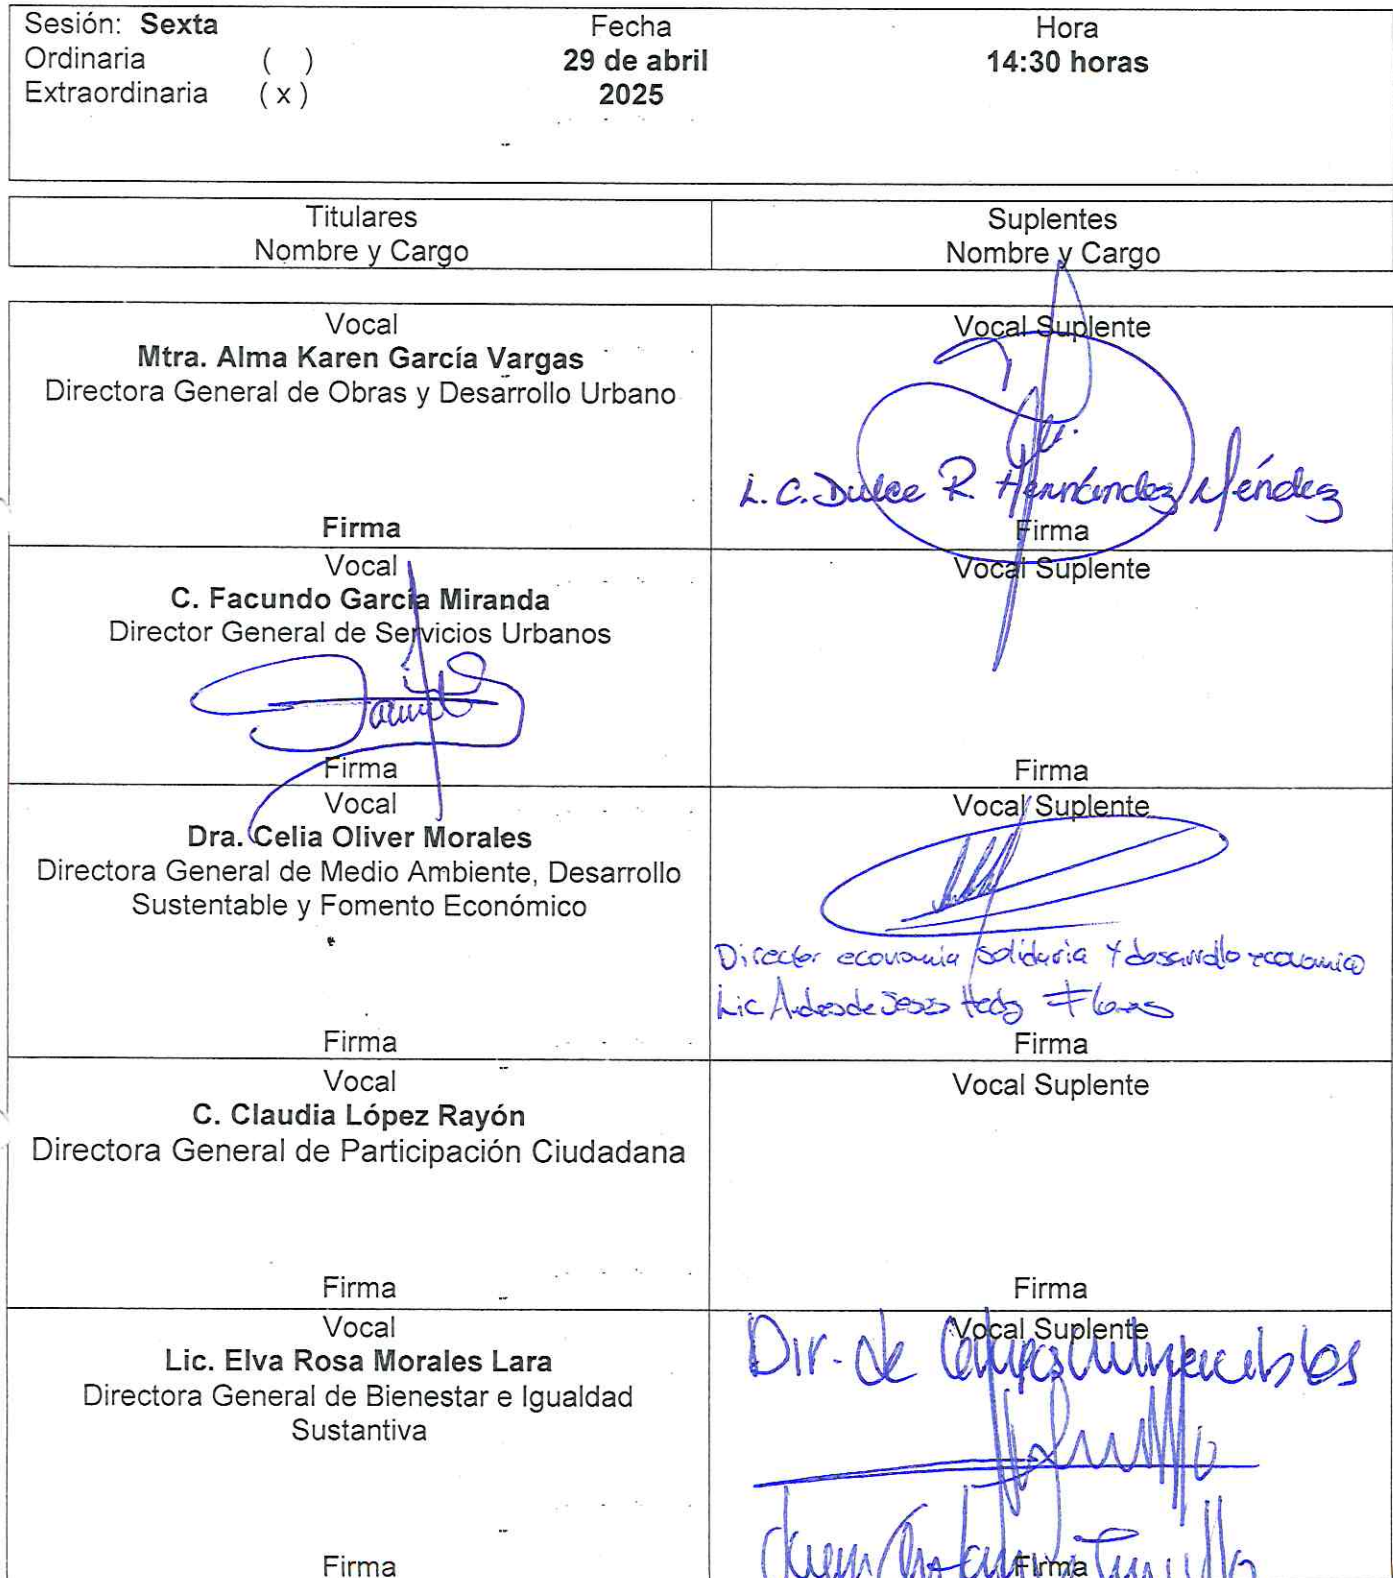 Sesión: Sexta Fecha Hora
Ordinaria ( ) 29 de abril 14:30 horas
Extraordinaria ( x ) 2025
Titulares
Nombre y Cargo
Suplentes
Nombre y Cargo
Vocal
Mtra. Alma Karen García Vargas
Directora General de Obras y Desarrollo Urbano
Firma
Vocal Suplente
L.C. Dulce R. Hernández Méndez
Firma
Vocal
C. Facundo García Miranda
Director General de Servicios Urbanos
Firma
Vocal Suplente
Firma
Vocal
Dra. Celia Oliver Morales
Directora General de Medio Ambiente, Desarrollo
Sustentable y Fomento Económico
Firma
Vocal Suplente
Director economia solidaria y desarrollo economico
Lic Andres de Jesus Hedz Flores
Firma
Vocal
C. Claudia López Rayón
Directora General de Participación Ciudadana
Firma
Vocal Suplente
Firma
Vocal
Lic. Elva Rosa Morales Lara
Directora General de Bienestar e Igualdad
Sustantiva
Firma
Vocal Suplente
Dir. de
Firma